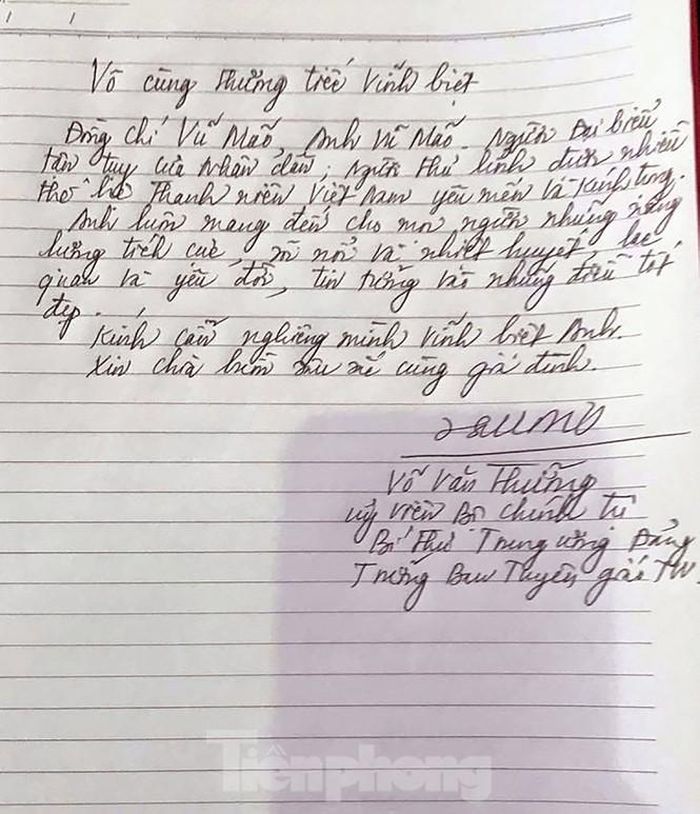 Vô cùng thương tiếc vĩnh biệt
Đồng chí Vũ Mão, Anh Vũ Mão - Người Đại biểu
tận tụy của Nhân dân; người thủ lĩnh được nhiều
thế hệ Thanh niên Việt Nam yêu mến và kính trọng.
Anh luôn mang đến cho mọi người những năng
lượng tích cực, sôi nổi và nhiệt huyết, lạc
quan và yêu đời, tin tưởng vào những điều tốt
đẹp.
Kính cẩn nghiêng mình vĩnh biệt Anh.
Xin chia buồn sâu sắc cùng gia đình.
Võ Văn Thưởng
Uỷ viên Bộ chính trị
Bí thư Trung ương Đảng
Trưởng Ban Tuyên giáo TW
Tiền phong